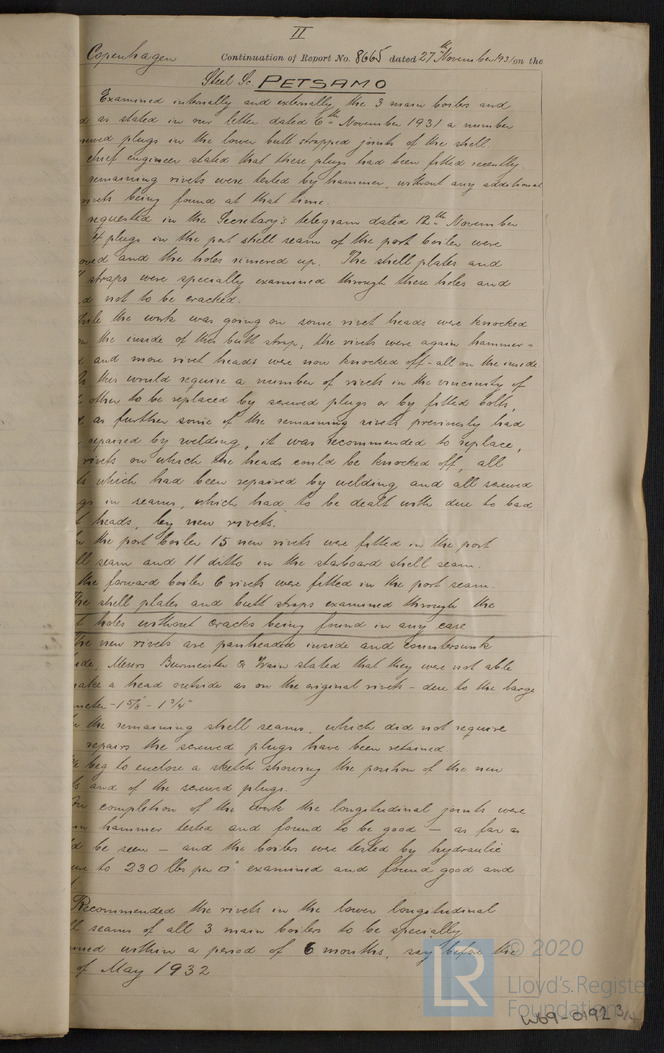 II
Copenhagen Continuation of Report No. 8665 dated 27th November 1931 on the
Steel Sc. PETSAMO
Examined internally and externally the 3 main boilers and
as stated in our letter dated 6th November 1931 a number
plugs in the lower butt strapped joints of the shell
chief engineer stated that these plugs had been fitted recently
remaining rivets were tested by hammer, without any additional
being found at that time.
requested in the Secretary's telegram dated 12th November
4 plugs in the port shell seam of the port boiler were
and the holes rimered up. The shell plates and
straps were specially examined through these holes and
not to be cracked.
the work was going on some rivet heads were knocked
the inside of this butt strap, the rivets were again hammer-
and more rivet heads were now knocked off - all on the inside
this would require a number of rivets in the vincinity of
other to be replaced by screwed plugs or by fitted bolts,
as further some of the remaining rivets previously had
repaired by welding, it was recommended to replace,
rivets on which the heads could be knocked off, all
which had been repaired by welding and all screwed
in seams, which had to be dealt with due to bad
heads, by new rivets.
the port boiler 15 new rivets were fitted in the port
seam and 11 ditto in the starboard shell seam.
the forward boiler 6 rivets were fitted in the port seam.
The shell plates and butt straps examined through the
holes without cracks being found in any case
The new rivets are panheaded inside and countersunk
Messrs Burmeister & Wain stated that they were not able
a head outside as on the original rivets - due to the large
- 1 5/8" - 1 3/4"
the remaining shell seams, which did not require
repairs the screwed plugs have been retained
beg to enclose a sketch showing the position of the new
and of the screwed plugs.
On completion of the work the longitudinal joints were
hammer tested and found to be good - as far as
be seen - and the boilers were tested by hydraulic
to 230 lbs per □" examined and found good and
Recommended the rivets in the lower longitudinal
seams of all 3 main boilers to be specially
within a period of 6 months, say before the
of May 1932
© 2020
LR
Lloyd's Register
Foundation
W69-0192 3/4